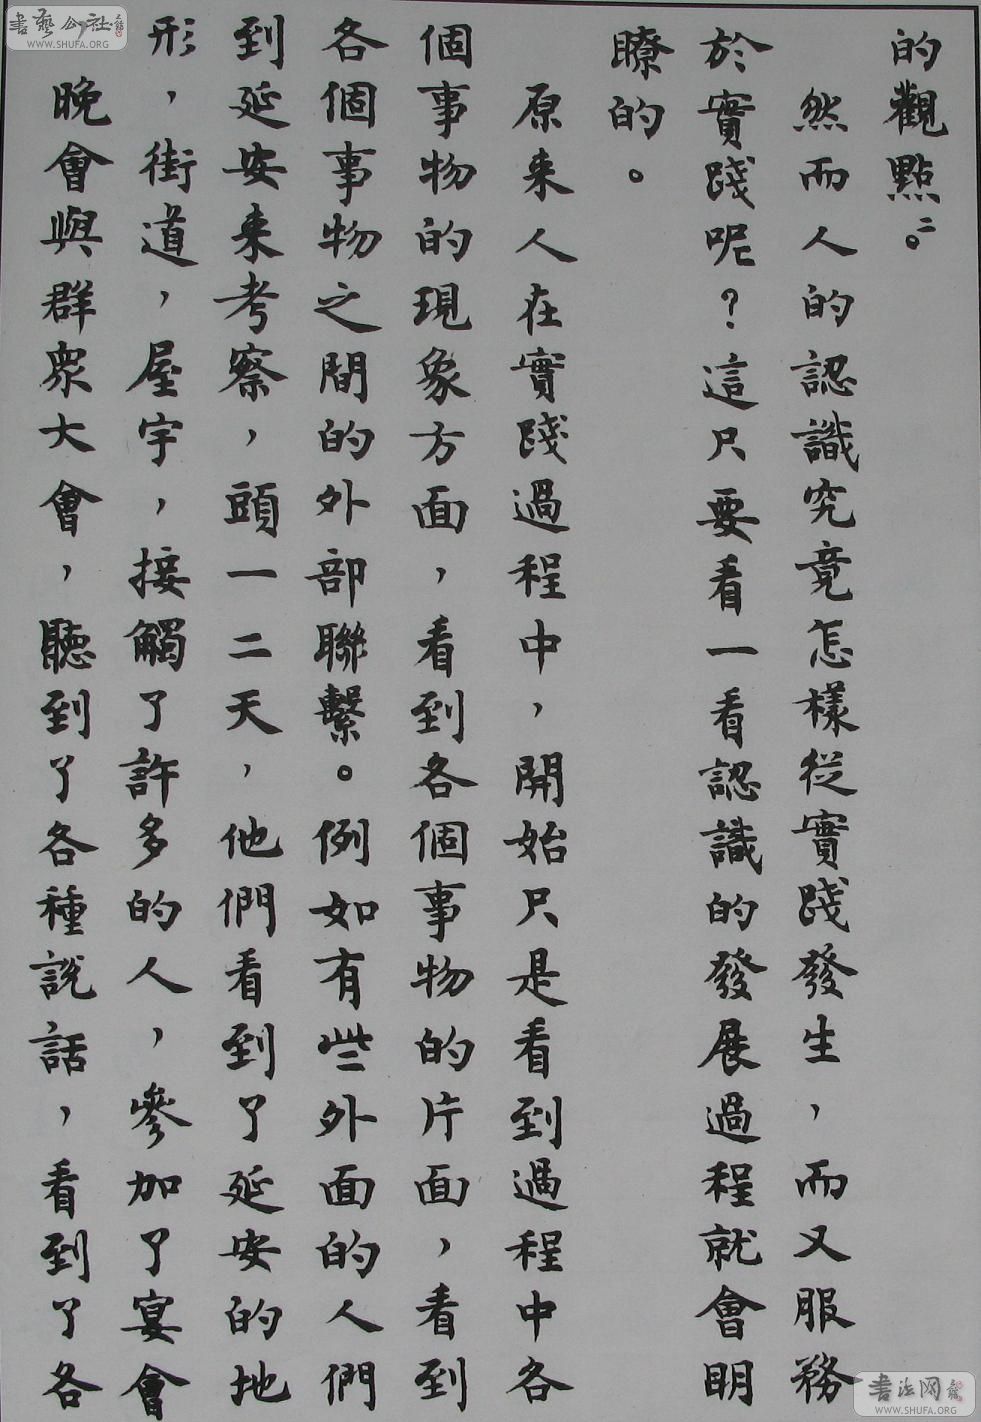 的觀點。二
然而人的認識究竟怎樣從實踐發生，而又服務
於實踐呢？這只要看一看認識的發展過程就會明
瞭的。
原来人在實踐過程中，開始只是看到過程中各
個事物的現象方面，看到各個事物的片面，看到
各個事物之間的外部聯繫。例如有些外面的人們
到延安来考察，頭一二天，他們看到了延安的地
形，街道，屋宇，接觸了許多的人，參加了宴會
晚會與群眾大會，聽到了各種說話，看到了各
書藝公社
WWW.SHUFA.ORG
書法网
WWW.SHUFA.ORG